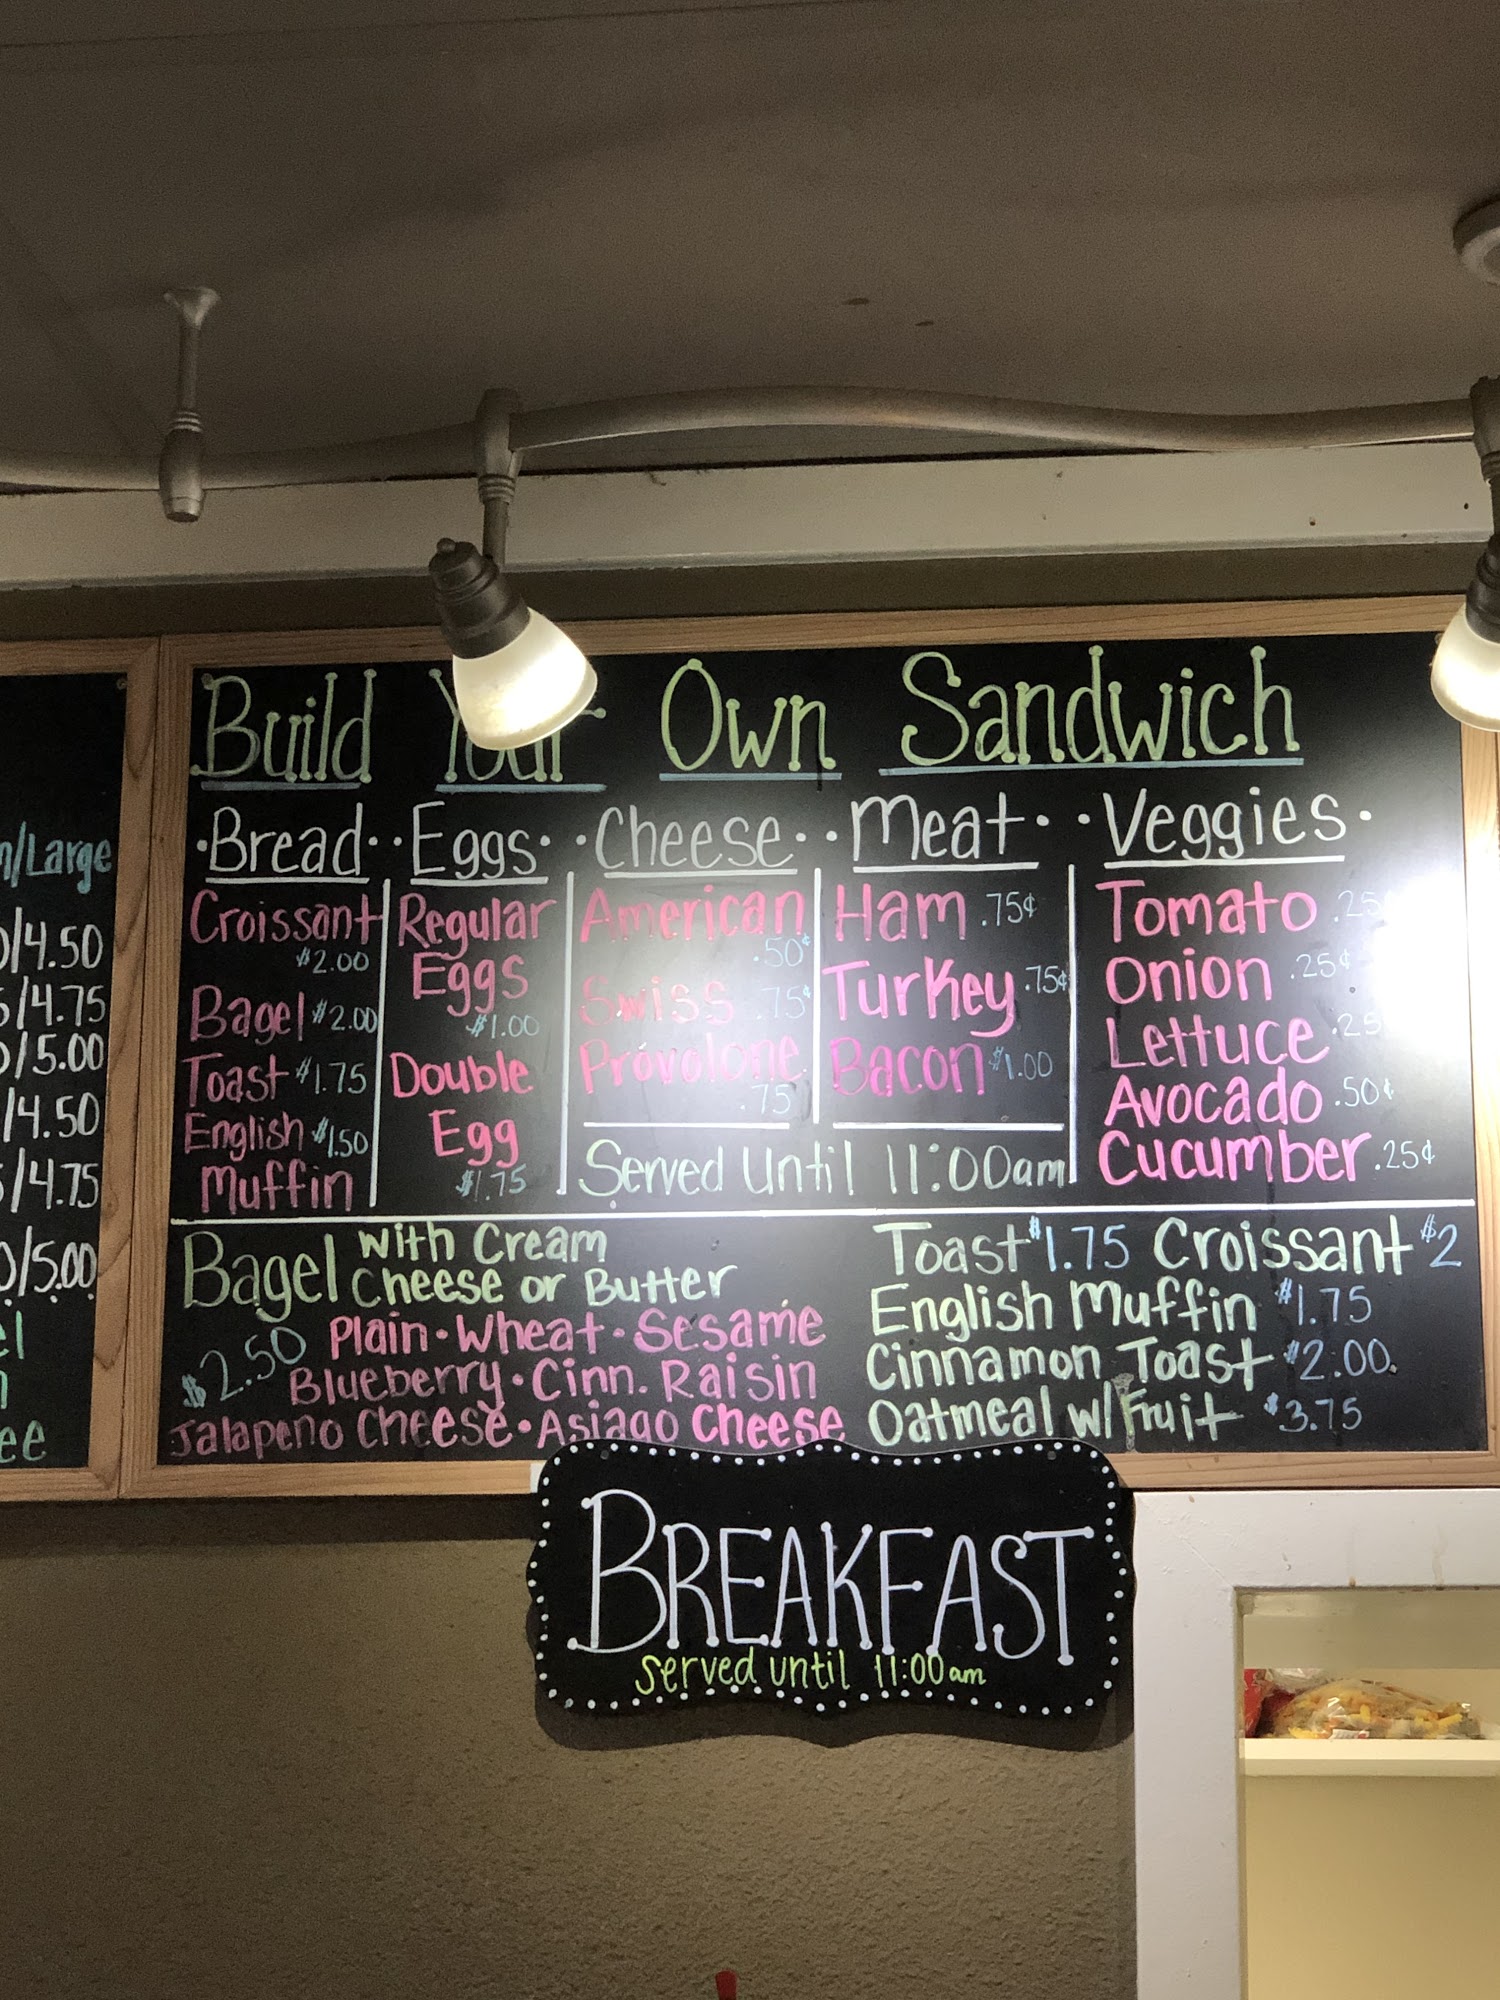 n/Large
0/4.50
5/4.75
0/5.00
/4.50
5/4.75
0/5.00
ee
Build Your Own Sandwich
·Bread· ·Eggs· ·Cheese· ·Meat· ·Veggies·
Croissant
$2.00
Bagel $2.00
Toast $1.75
English $1.50
Muffin
Regular
Eggs
$1.00
Double
Egg
$1.75
American
.50¢
Swiss .75¢
Provolone
.75
Ham .75¢
Turkey .75¢
Bacon $1.00
Served Until 11:00am
Tomato .25
Onion .25¢
Lettuce .25
Avocado .50¢
Cucumber .25¢
Bagel with Cream
Cheese or Butter
$2.50
Plain · Wheat · Sesame
Blueberry · Cinn. Raisin
Jalapeno Cheese · Asiago Cheese
Toast $1.75 Croissant $2
English Muffin $1.75
Cinnamon Toast $2.00
Oatmeal w/Fruit $3.75
BREAKFAST
served until 11:00am